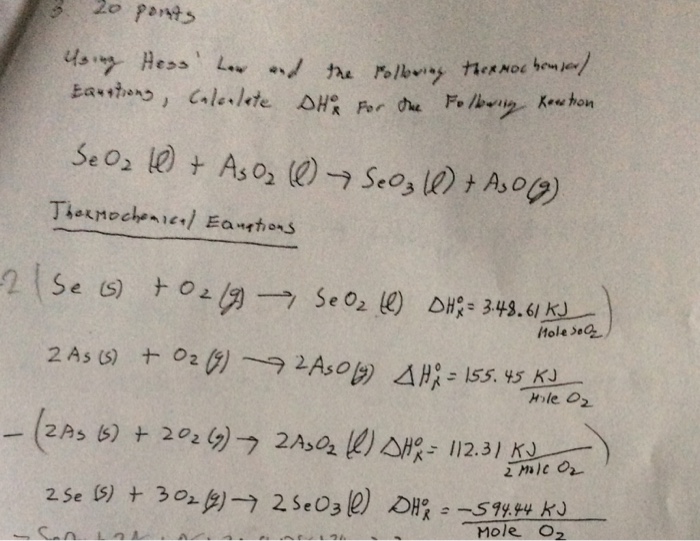 3 20 points
Using Hess' Law and the Following Thermochemical
Equations, Calculate ΔH°R For the Following Reaction
SeO2 (l) + AsO2 (l) → SeO3 (l) + AsO(g)
Thermochemical Equations
-2 ( Se (s) + O2 (g) → SeO2 (l) ΔH°R = 3.48.61 KJ / Mole SeO2 )
2As (s) + O2 (g) → 2AsO(g) ΔH°R = 155.45 KJ / Mole O2
- (2As (s) + 2O2 (g) → 2AsO2 (l) ΔH°R = 112.31 KJ / 2 Mole O2 )
2Se (s) + 3O2 (g) → 2SeO3 (l) ΔH°R = -594.44 KJ / Mole O2